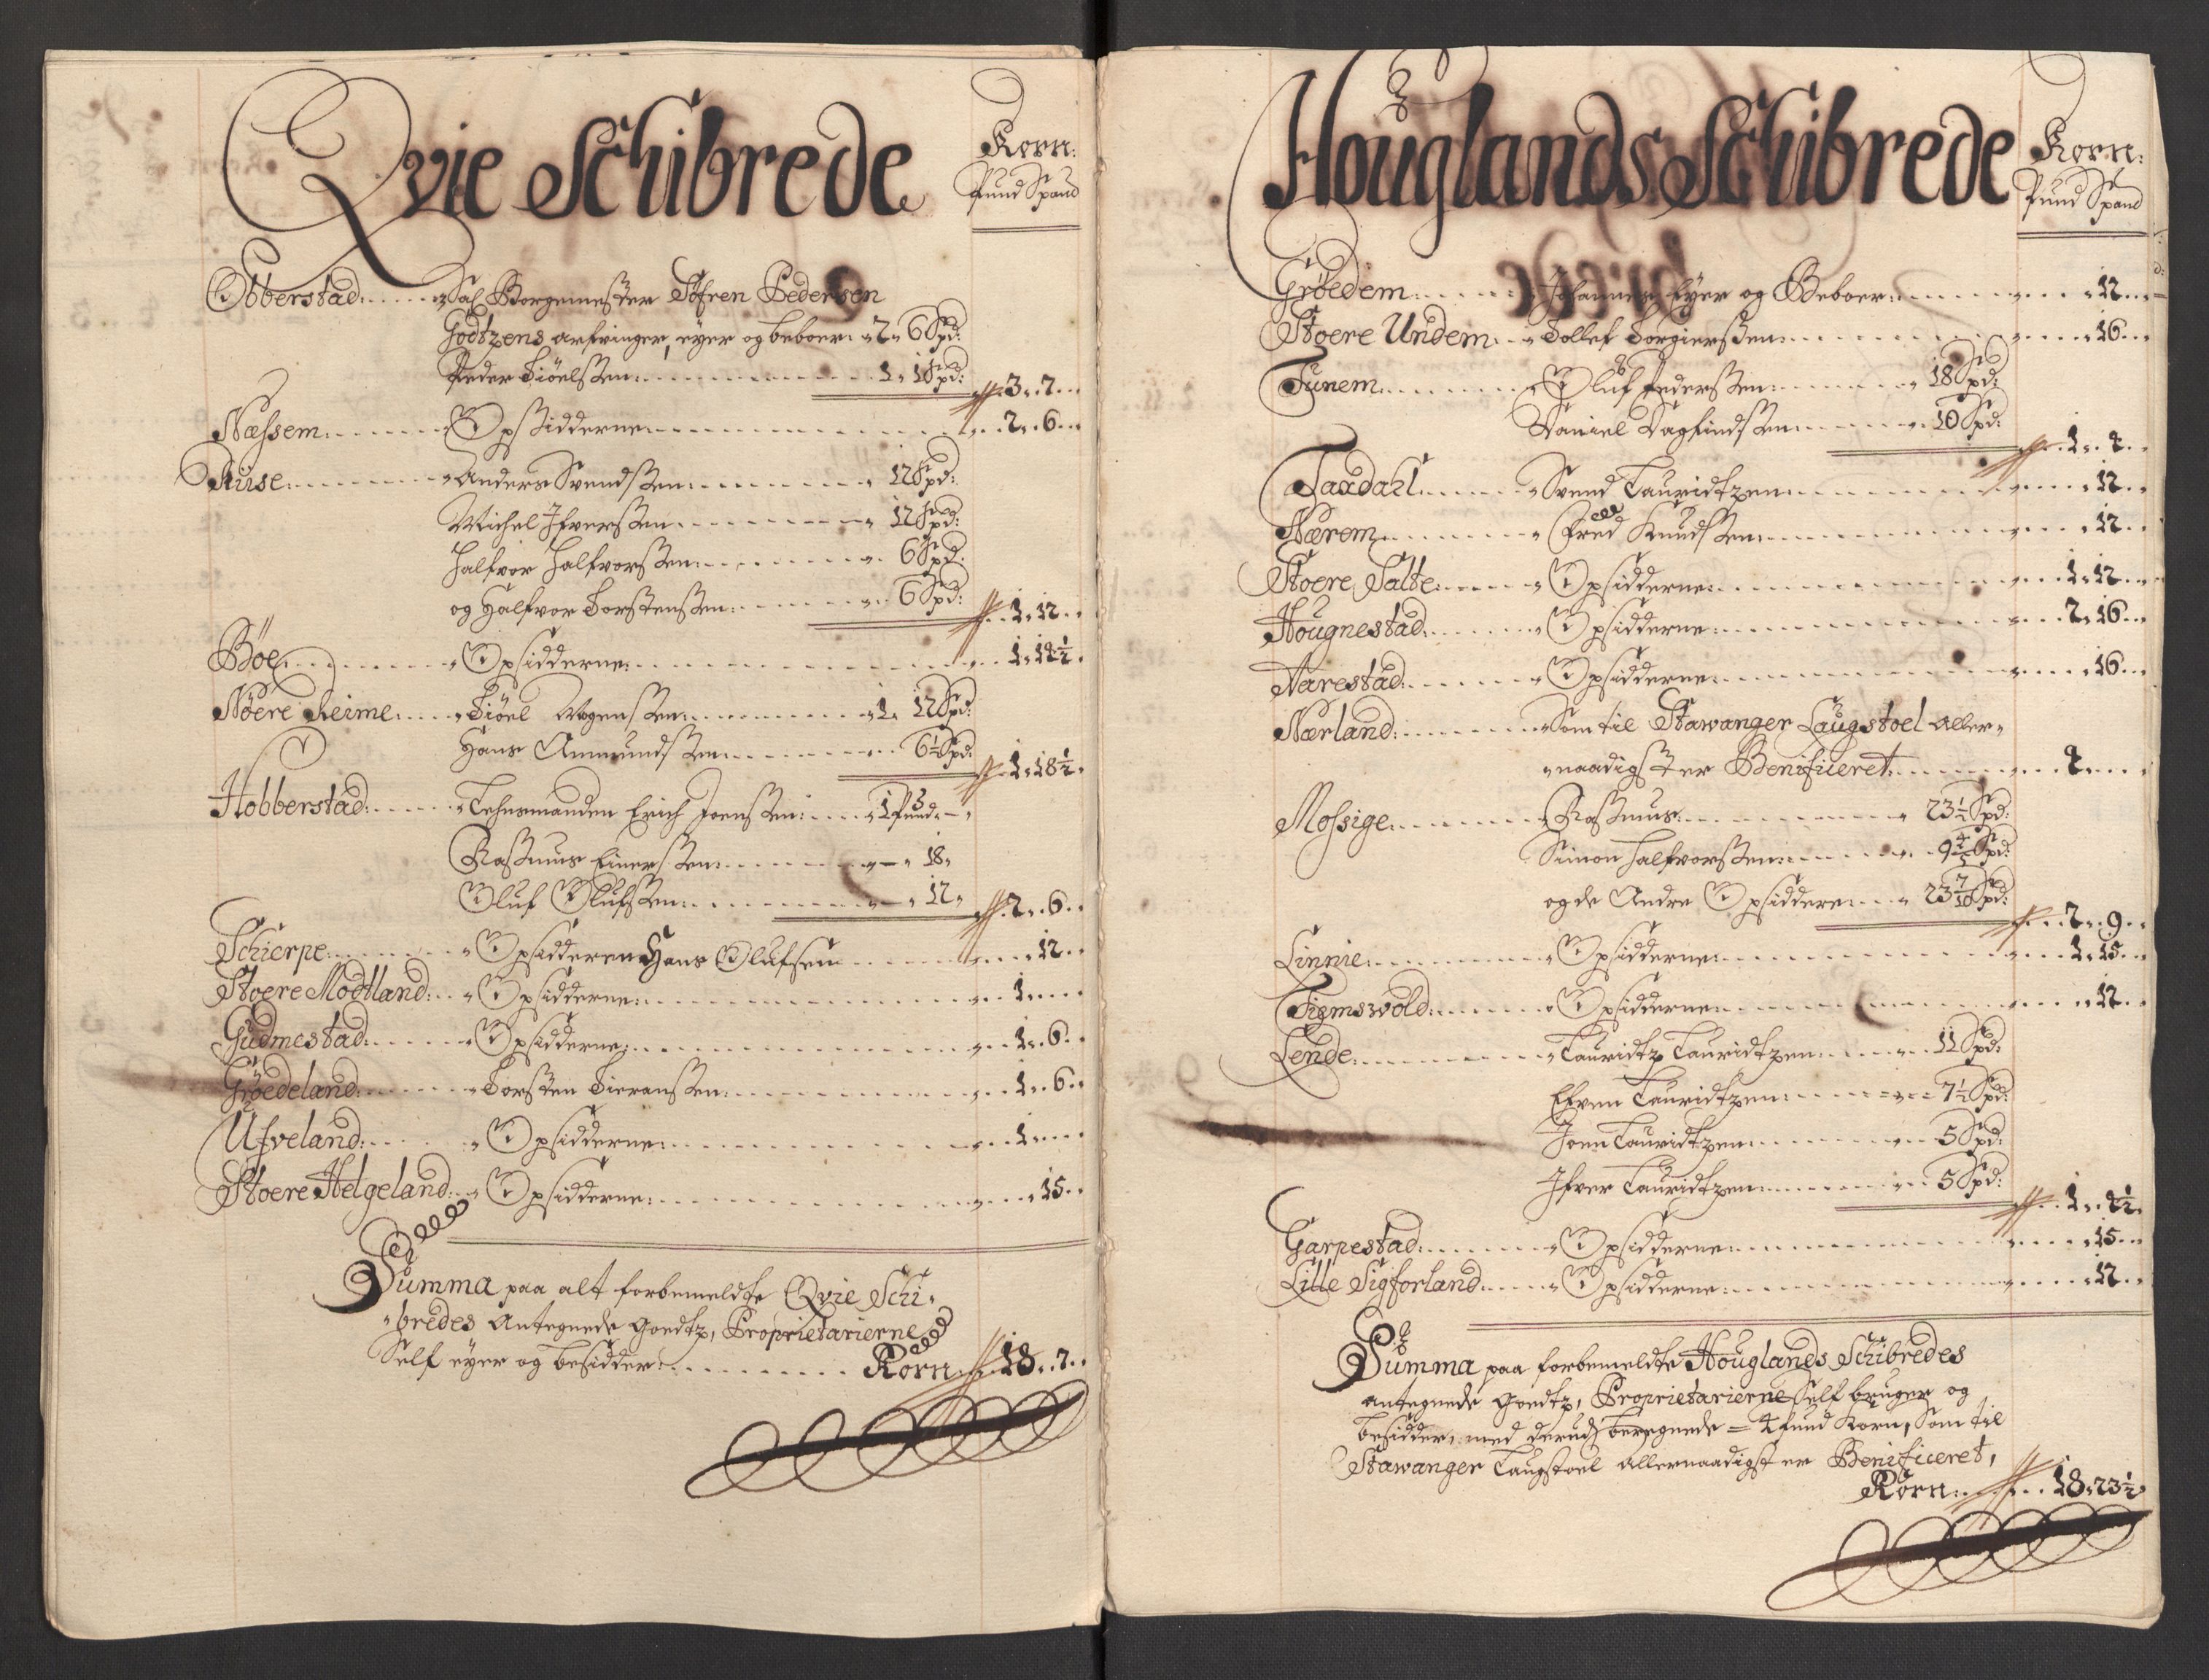 Qvie Schibrede
Korn:
Pund Spand
Obberstad:..... Sal Borgemester Söfren Pedersen
Godtzens arfvinger, eyer og beboer 2. 6 Spd:
Peder Siöelsten: 1. 1 Spd: 3. 7.
Næssem: Opsidderne: 2. 6.
Ruse: Anders Svendsten: 12 Spd:
Michel Ifversten: 12 Spd:
Halfvor Halfvorsten: 6 Spd:
og Halfvor Torstensten: 6 Spd: 1. 12.
Böe: Opsidderne: 1. 12½.
Nöere Reime: Siöel Mogensten: 1. 12 Spd:
Hans Ammundsten: 6½ Spd: 1. 18½.
Hobberstad: Lehnsmanden Erich Joensten: 1 Pund. -
Rasmus Einersten: - 18.
Oluf Olufsten: - 12. 2. 6.
Schierpe: Opsidderen Hans Olufsen 12.
Stoere Modtland: Opsidderne: 1.
Gudmestad: Opsidderne: 1. 6.
Gröedeland: Torsten Tieransten: 1. 6.
Ufveland: Opsidderne: 1.
Stoere Helgeland: Opsidderne: 15.
Summa paa alt forbemeldte Qvie Schi-
bredes Antegnede Goedtz, Proprietarierne
Self eyer og besidder: Korn 18. 7.
Houglands Schibrede
Korn:
Pund Spand
Gröedem: Johannes Eyer og Beboer: 12.
Stoere Undem: Tollef Torgiersten: 16.
Tunem: Oluf Pedersten: 18 Spd:
Daniel Dagfindsten: 10 Spd: 1. 4.
Taxdahl: Svend Lauridtzen: 12.
Nærem: Fred Knudsten: 12.
Stoere Salte: Opsidderne: 1. 12.
Hougnestad: Opsidderne: 2. 16.
Aarestad: Opsidderne: 16.
Nærland: Som til Stawanger Laugstoel Aller-
naadigst er Benificeret: 4.
Mossige: Rasmus: 23½ Spd:
Simon Halfvorsten: 9⅘ Spd:
og de Andre Opsiddere: 23 7/10 Spd: 2. 9.
Linnie: Opsidderne: 1. 15.
Tiemswold: Opsidderne: 12.
Lende: Lauridtz Lauridtzen: 11 Spd:
Efven Lauridtzen: 7½ Spd:
Joen Lauridtzen: 5 Spd:
Ifver Lauridtzen: 5 Spd: 1. 4½.
Garpestad: Opsidderne: 15.
Lille Sigforland: Opsidderne: 12.
Summa paa forbemeldte Houglands Schibredes
antegnede Goedtz, Proprietarierne Self bruger og
besidder, med derudj beregnede = 4 Pund Korn, Som til
Stawanger Laugstoel Allernaadigst er Benificeret,
Korn: 18. 23½.